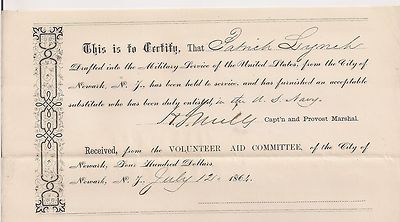 This is to Certify, That Patrick Lynch
Drafted into the Military Service of the United States, from the City of
Newark, N. J., has been held to service, and has furnished an acceptable
substitute who has been duly enlisted, in the U. S. Navy.
Capt'n and Provost Marshal.
Received, from the VOLUNTEER AID COMMITTEE, of the City of
Newark, Four Hundred Dollars.
Newark, N. J., July 12 1864.